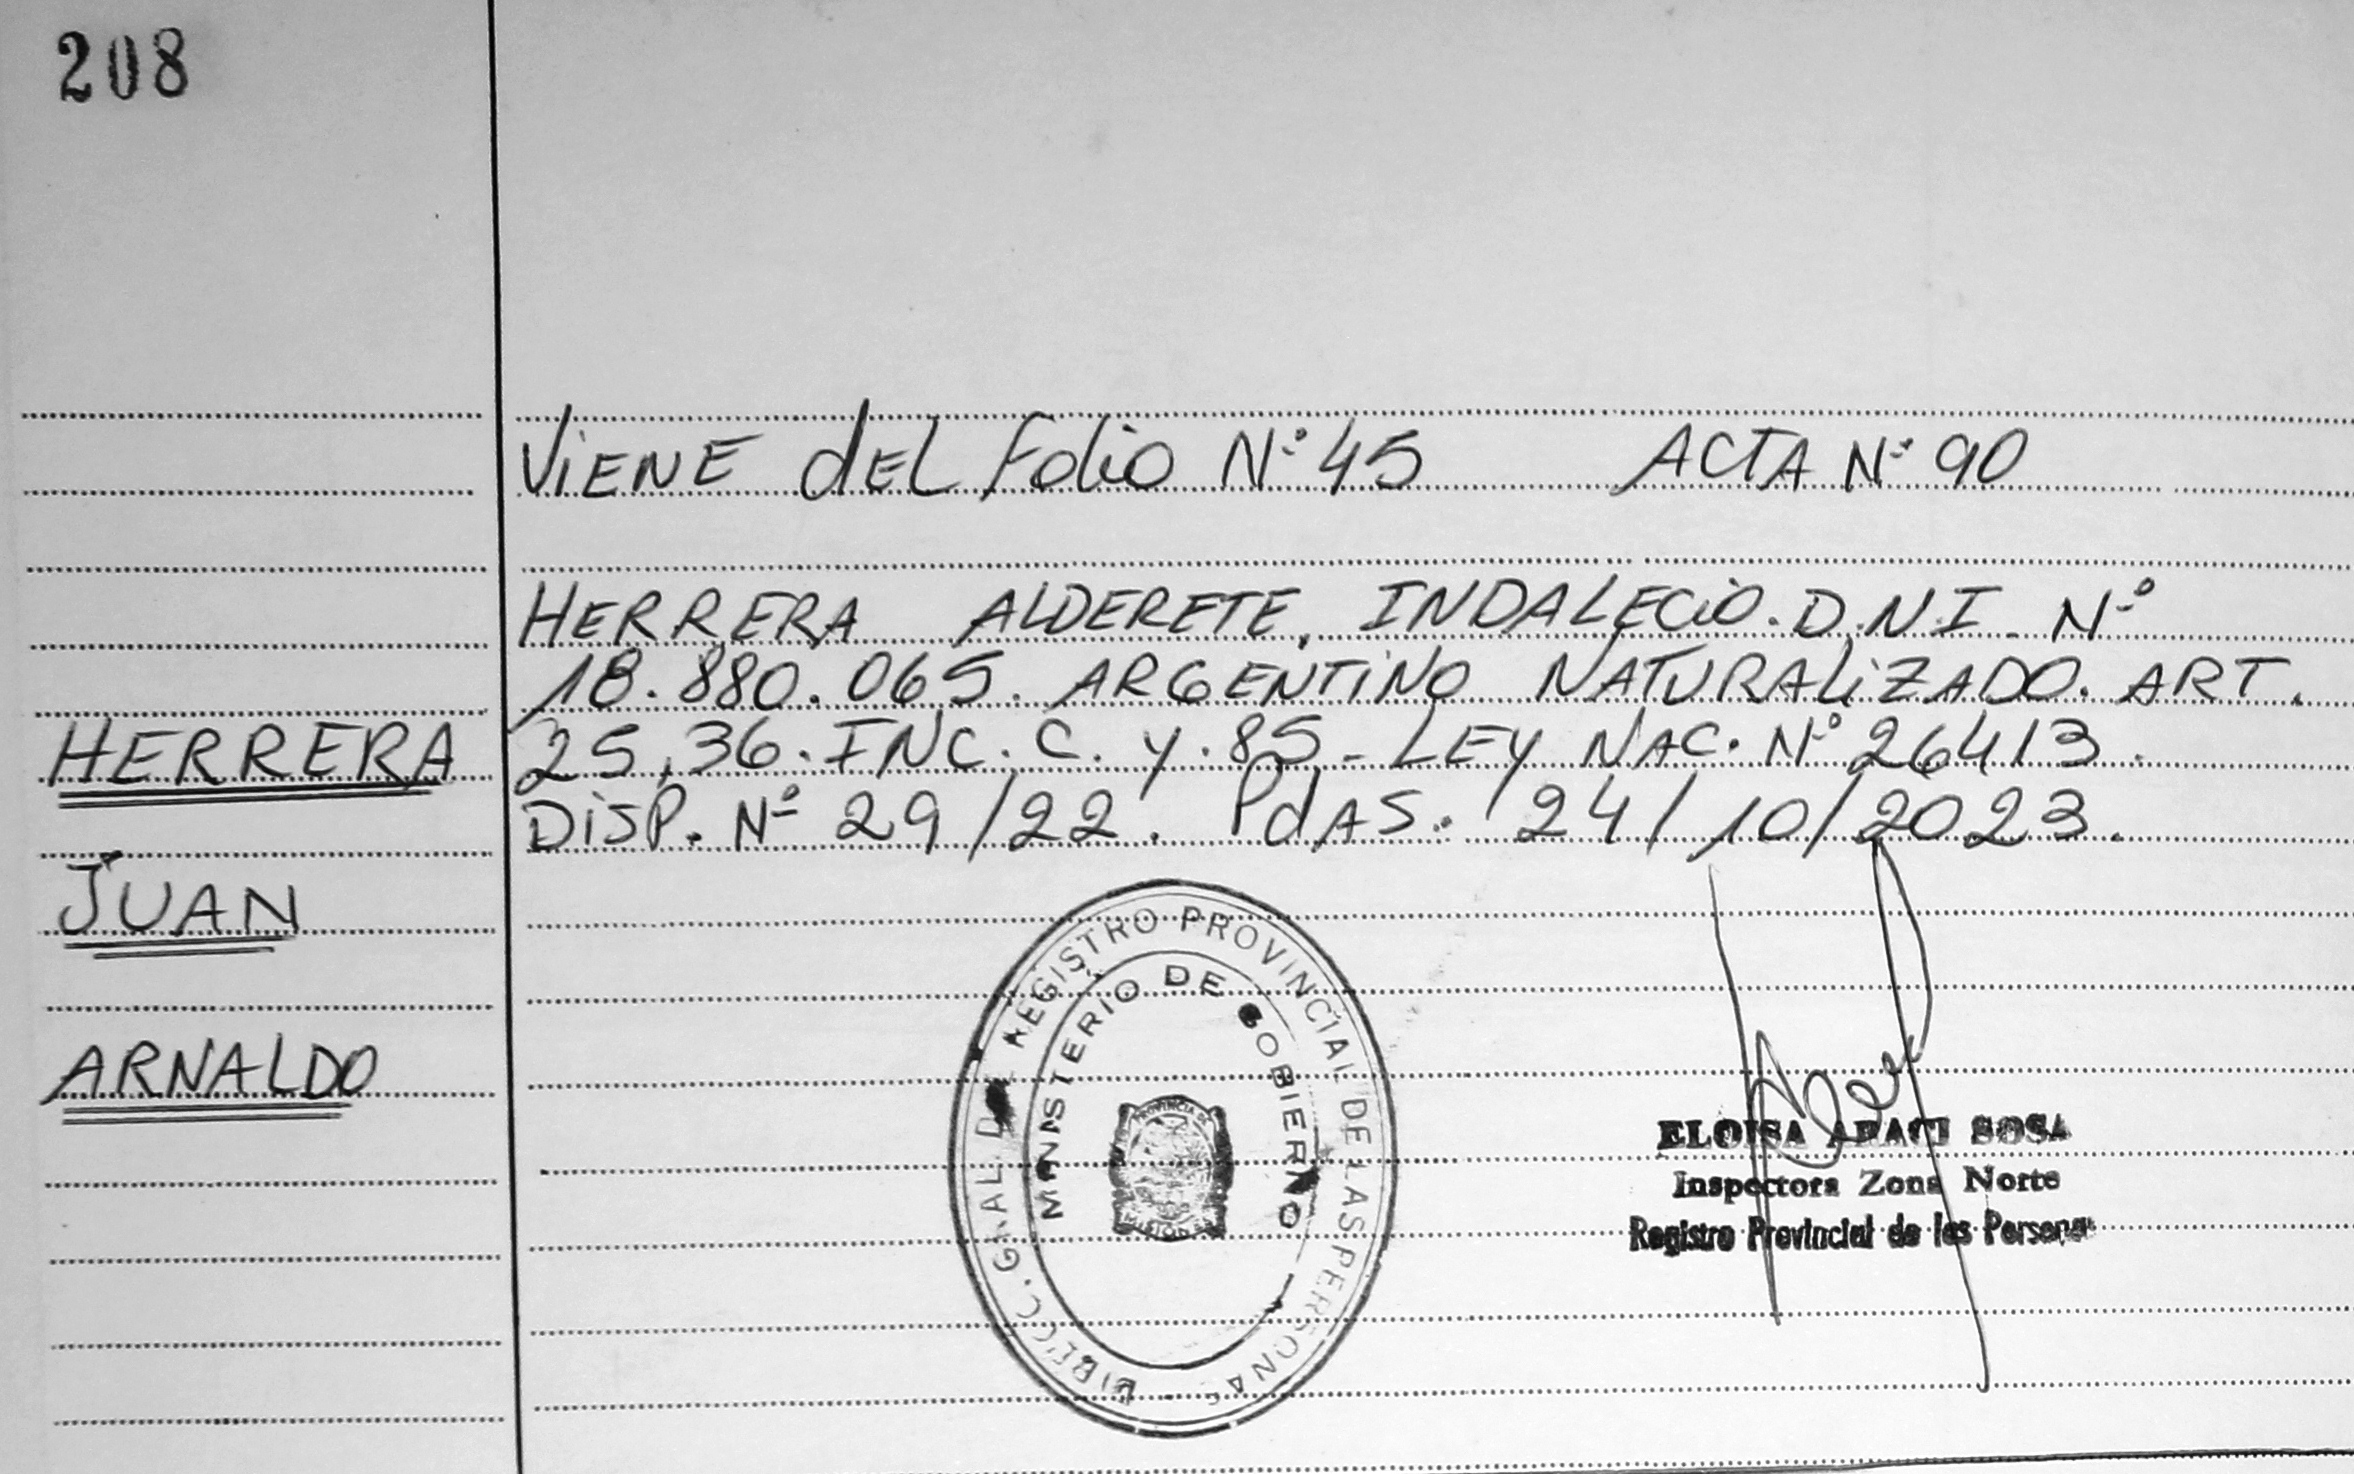 208
VIENE dEL Folio Nº 45 ACTA Nº 90
HERRERA ALDERETE, INDALECIO. D.N.I. Nº
18.880.065. ARGENTINO NATURALIZADO. ART.
25, 36. INC. C. y. 85 - LEY NAC. Nº 26413.
DISP. Nº 29/22. PdAS. 24/10/2023.
HERRERA
JUAN
ARNALDO
DIRECC. GRAL DEL REGISTRO PROVINCIAL DE LAS PERSONAS
MINISTERIO DE GOBIERNO
PROVINCIA DE
MISIONES
ELOISA ARACI SOSA
Inspectora Zona Norte
Registro Provincial de las Personas